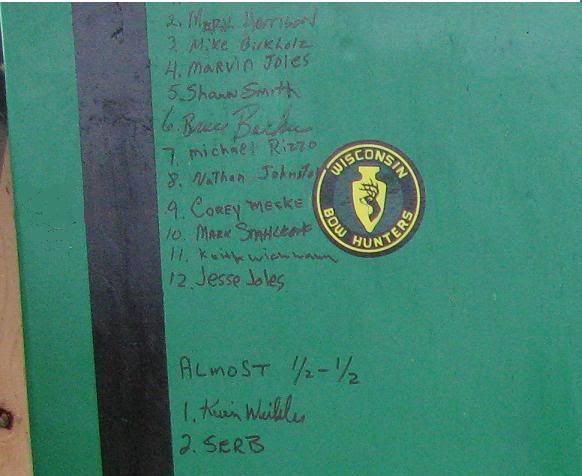 2. Mark Harrison
3. Mike Birkholz
4. Marvin Joles
5. Shawn Smith
6. Bruce
7. michael Rizzo
8. Nathan Johnston
9. Corey Meeke
10. MARK
11. Keith wichmann
12. Jesse Joles
WISCONSIN
BOW HUNTERS
ALMOST 1/2-1/2
1. Kevin
2. SERB